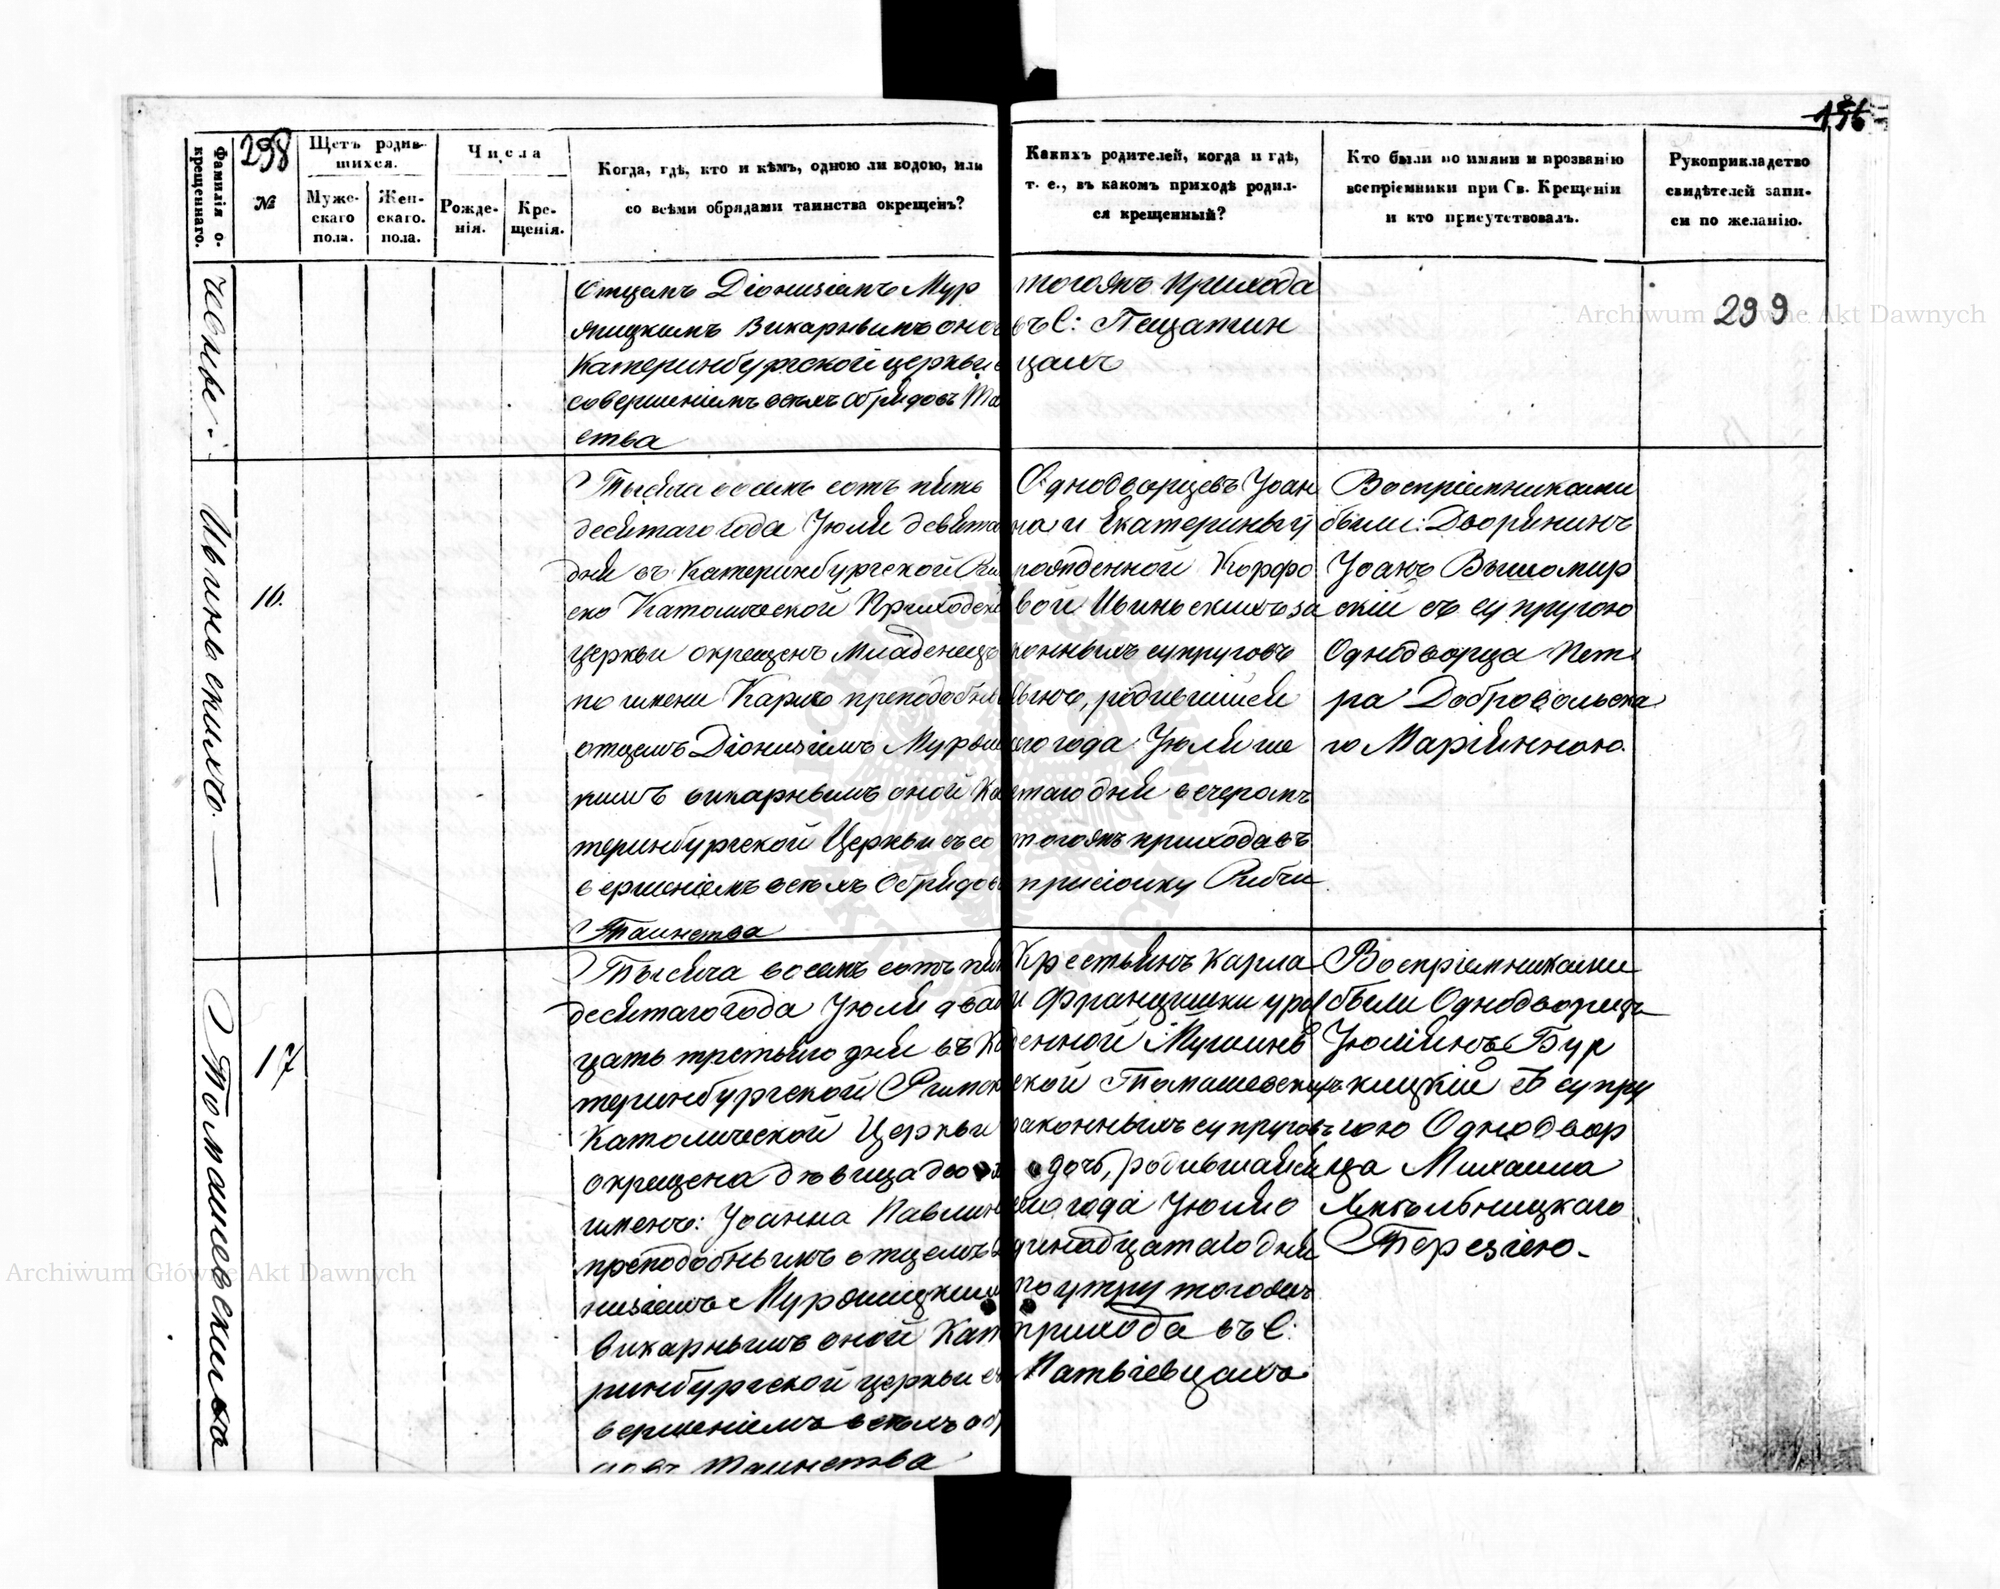 298
156
Фамилія о-
крещеннаго.
№
Щетъ родив-
шихся.
Муже-
скаго
пола.
Жен-
скаго.
пола.
Числа
Рожде-
нія.
Кре-
щенія.
Когда, гдѣ, кто и кѣмъ, одною ли водою, или
со всѣми обрядами таинства окрещенъ?
Какихъ родителей, когда и гдѣ,
т. е., въ какомъ приходѣ родил-
ся крещенный?
Кто были по имяни и прозванію
воспріемники при Св. Крещеніи
и кто присутствовалъ.
Рукоприкладство
свидѣтелей запи-
си по желанію.
отцемъ Діонизіемъ Мур
яницкимъ Викарнымъ оно
Катеринбургской церкви с
совершеніемъ всѣхъ обрядовъ Та
ства
тогожъ Прихода
въ С: Пащатин
цахъ
299
Ивинскихъ.
16.
Тысяча восемь сотъ пять
десятаго года Іюля девята
дня въ Катеринбургской Рим
ско Католической Приходск
церкви окрещенъ Младенецъ
по имени Карлъ преподобны
отцемъ Діонизіемъ Муряни
кимъ викарнымъ оной Ка
теринбургской Церкви съ со
вершеніемъ всѣхъ Обрядов
Таинства
Однодворцевъ Іоан
на и Екатерины у
рожденной Корфо
вой Ивинскихъ за
конныхъ супруговъ
сынъ, родившійся
сего года Іюля ше
стаго дня вечеромъ
тогожъ прихода въ
присіолку Рибчи
Воспріемниками
были: Дворянинъ
Іоанъ Вышомир
скій съ супругою
Однодворца Пет
ра Добровольска
го Маріянною.
Томашевскихъ
17
Тысяча восемь сотъ пят
десятаго года Іюля двад
цать третьяго дня въ Ка
теринбургской Римско
Католической Церкви
окрещена дѣвица дво
именъ: Іоанна Павлин
преподобнымъ отцемъ Д
низіемъ Муряницким
викарнымъ оной Кат
ринбургской церкви с
вершеніемъ всѣхъ об
довъ Таинства
Крестьянъ Карла
и Францишки уро
денной Мушинв
ской Томашевскихъ
законныхъ супруговъ
дочь, родившаяся
сего года Іюля о
динадцатаго дня
по утру тогожъ
прихода въ С:
Матвіевцахъ
Воспріемниками
были Однодворецъ
Юліянъ Бур
клицкій съ супру
гою Однодвор
ца Михаила
Терезіею.
Archiwum Główne Akt Dawnych
Archiwum Główne Akt Dawnych